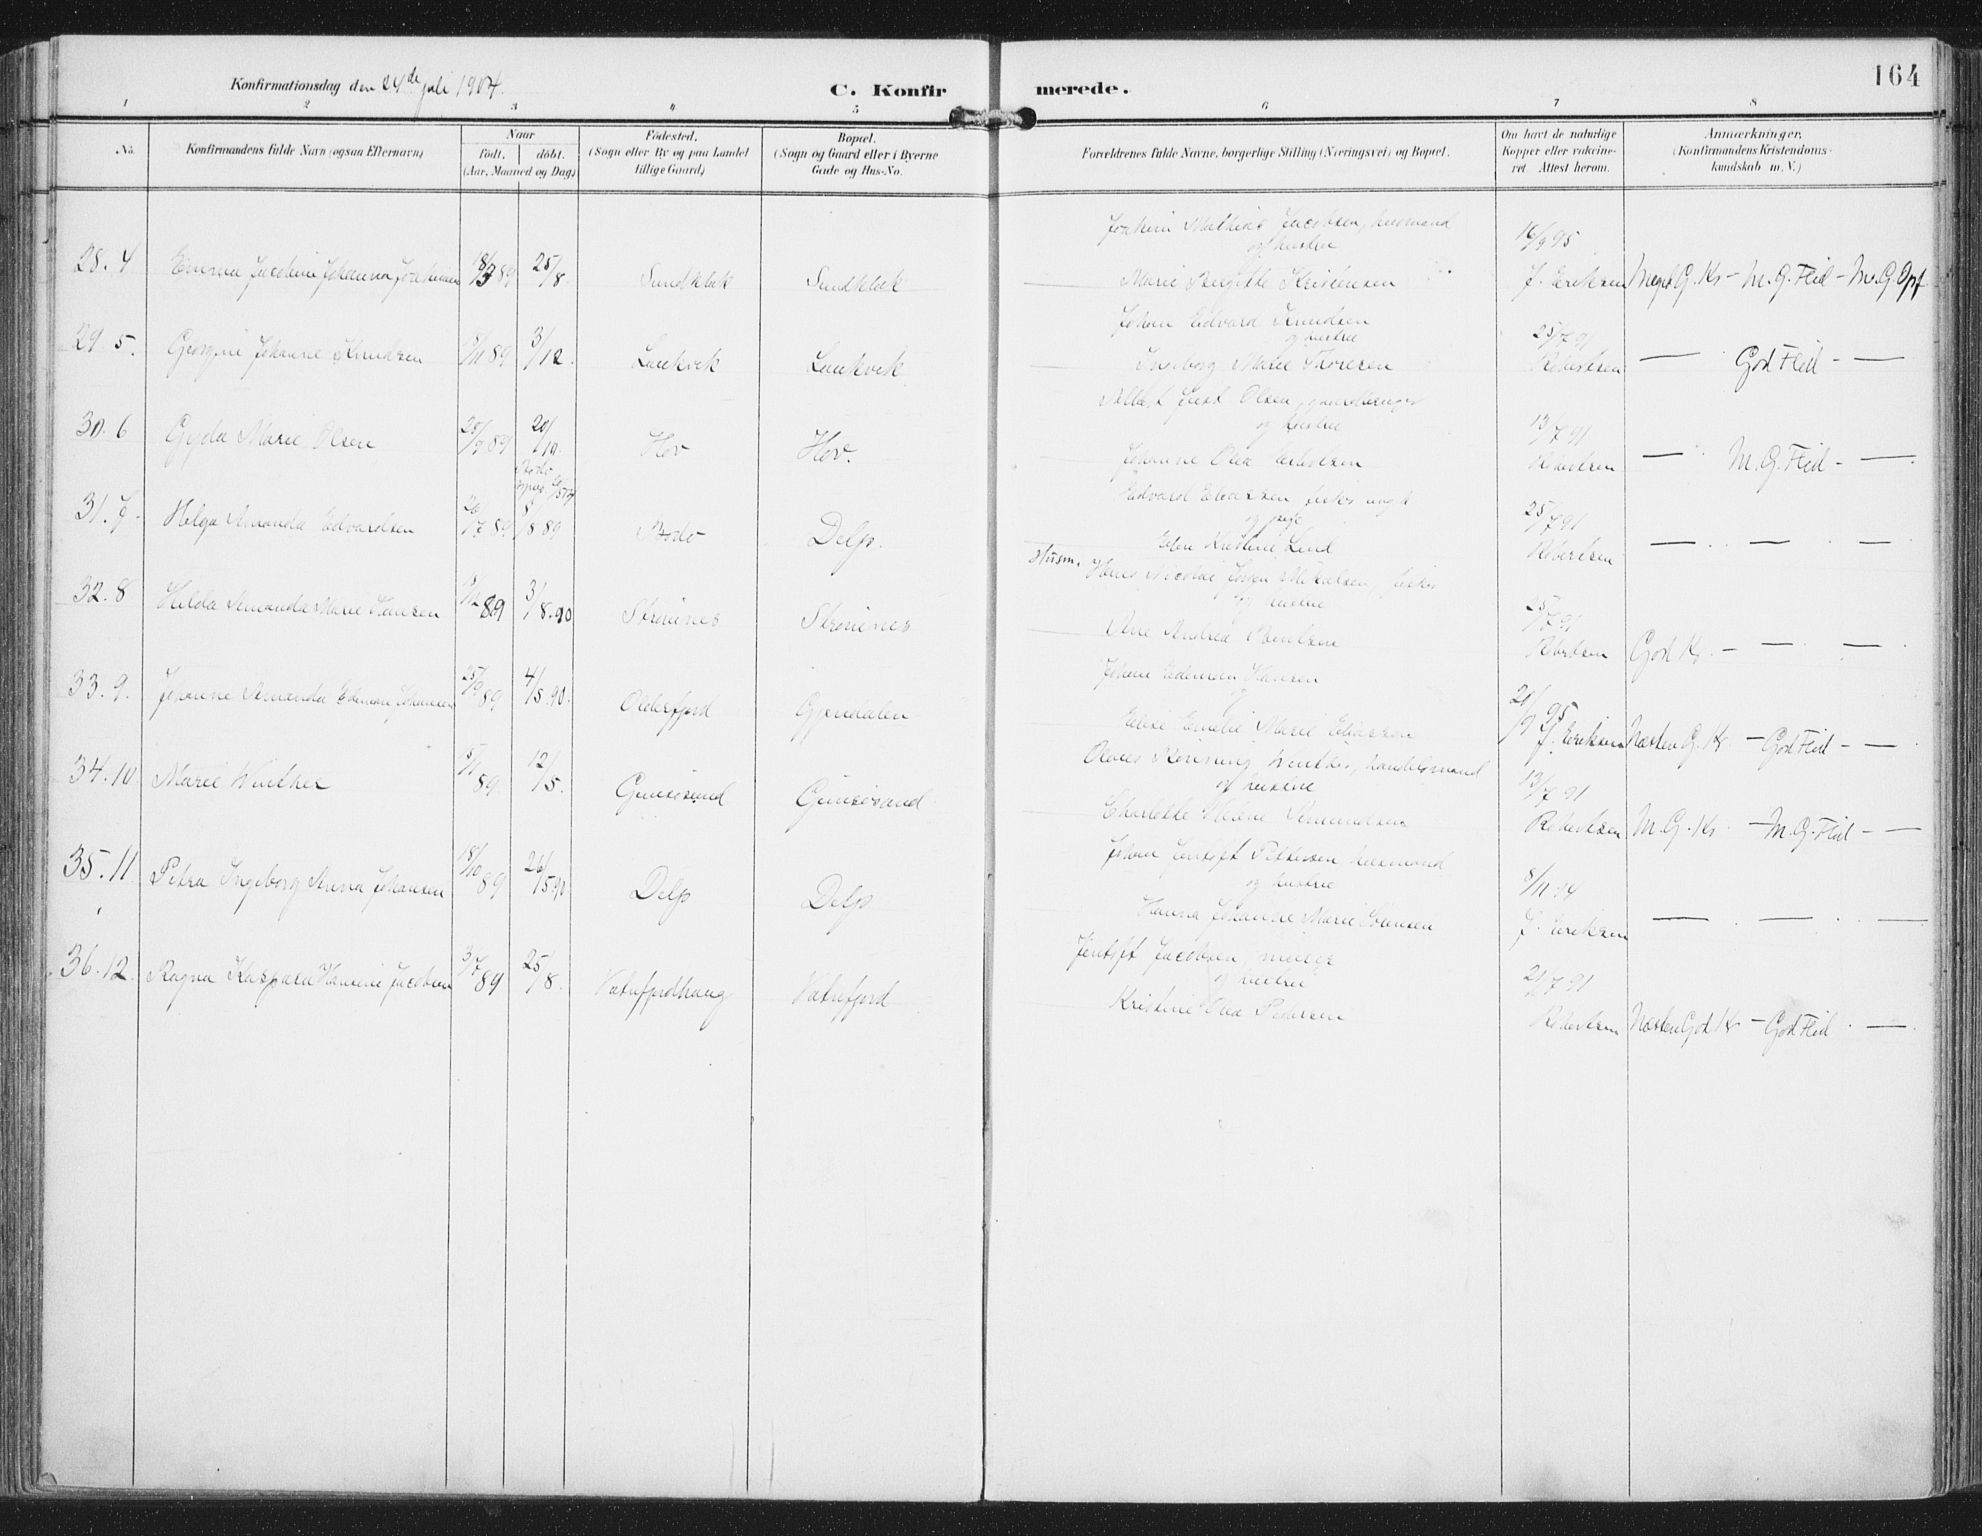 164
Konfirmationsdag den 24de juli 1904.
C. Konfirmerede.
1 2 3 4 5 6 7 8
No. Konfirmandens fulde Navn (ogsaa Efternavn) Naar Født. døbt. (Aar, Maaned og Dag) Fødested. (Sogn eller By og paa Landet tillige Gaard) Bopæl. (Sogn og Gaard eller i Byerne Gade og Hus-No. Forældrenes fulde Navne, borgerlige Stilling (Næringsvei) og Bopæl. Om havt de naturlige Kopper eller vakcineret Attest herom. Anmærkninger. (Konfirmandens Kristendomskundskab m. V.)
Joakim Mathias Jacobsen, husmand
og hustru
28. 4 Emma Jacobine Johanna Joakimsen 18/3 89 25/8 Sundklak Sundklak
Marie Birgitte Kristensen 16/9 95 J. Eriksen Meget G. Kr – M. G. Flid – M. G. Opf
Johan Edvard Knudsen
og hustru
29. 5. Georgine Johanne Knudsen /11 89 3/12. Laukvik Laukvik
Ingeborg Marie Thoresen 25/7 91 Robertsen — God Flid – —
Olsen, gaardbruger
og hustru
30. 6 Gyda Marie Olsen 25/9 89 20/10. Hov Hov.
Johanne Olea 13/7 91 Robertsen — M. G. Flid – —
Edvard Eliassen, fisker ungk
og pige
31. 7 Helga Amanda Edvardsen 20/7 89 8/8 89 Bodø Delp.
Elen Kristine Lind 25/7 91 Robertsen — — —
Husm. Hans Nicolai Mikalsen, fisker
og hustru
32. 8 Hilda Amanda Marie Hansen /12 89 3/8. 90 Strømnes Strømnes
Ane Andrea Paulsen 25/7 91 Robertsen God Kr. – — —
Johan Edemson Hansen
og
33. 9. Johanne Amanda Edemone Johansen 25/9 89 4/5. 90. Olderfjord Gjerdalen
Elise Emelie Marie Eliassen 20/9 95 J. Eriksen Næsten G. Kr – God Flid – —
Olaves Rønning Winther, handelsmand
og hustru
34. 10 Marie Winther 5/1 89 12/5. Gimsøsand Gimsøsand
Charlotte Helene Amundsen 13/7 91 Robertsen M. G. Kr. – M. G. Flid – —
Johan Jentoft Pettersen husmand
og hustru
35. 11 Petra Ingeborg Anna Johansen 18/10 89 26/5. 90 Delp Delp
Hanna Johanne Marie Sørensen 8/11 J. Eriksen — — —
Jentoft Jacobsen, murer
og hustru
36. 12. Ragna Kaspara Hansine Jacobsen 3/7 89 25/8. Vatnfjordhaug Vatnfjord
Kristine Olea Pedersen 21/7 91 Robertsen Næsten God Kr – God Flid. —